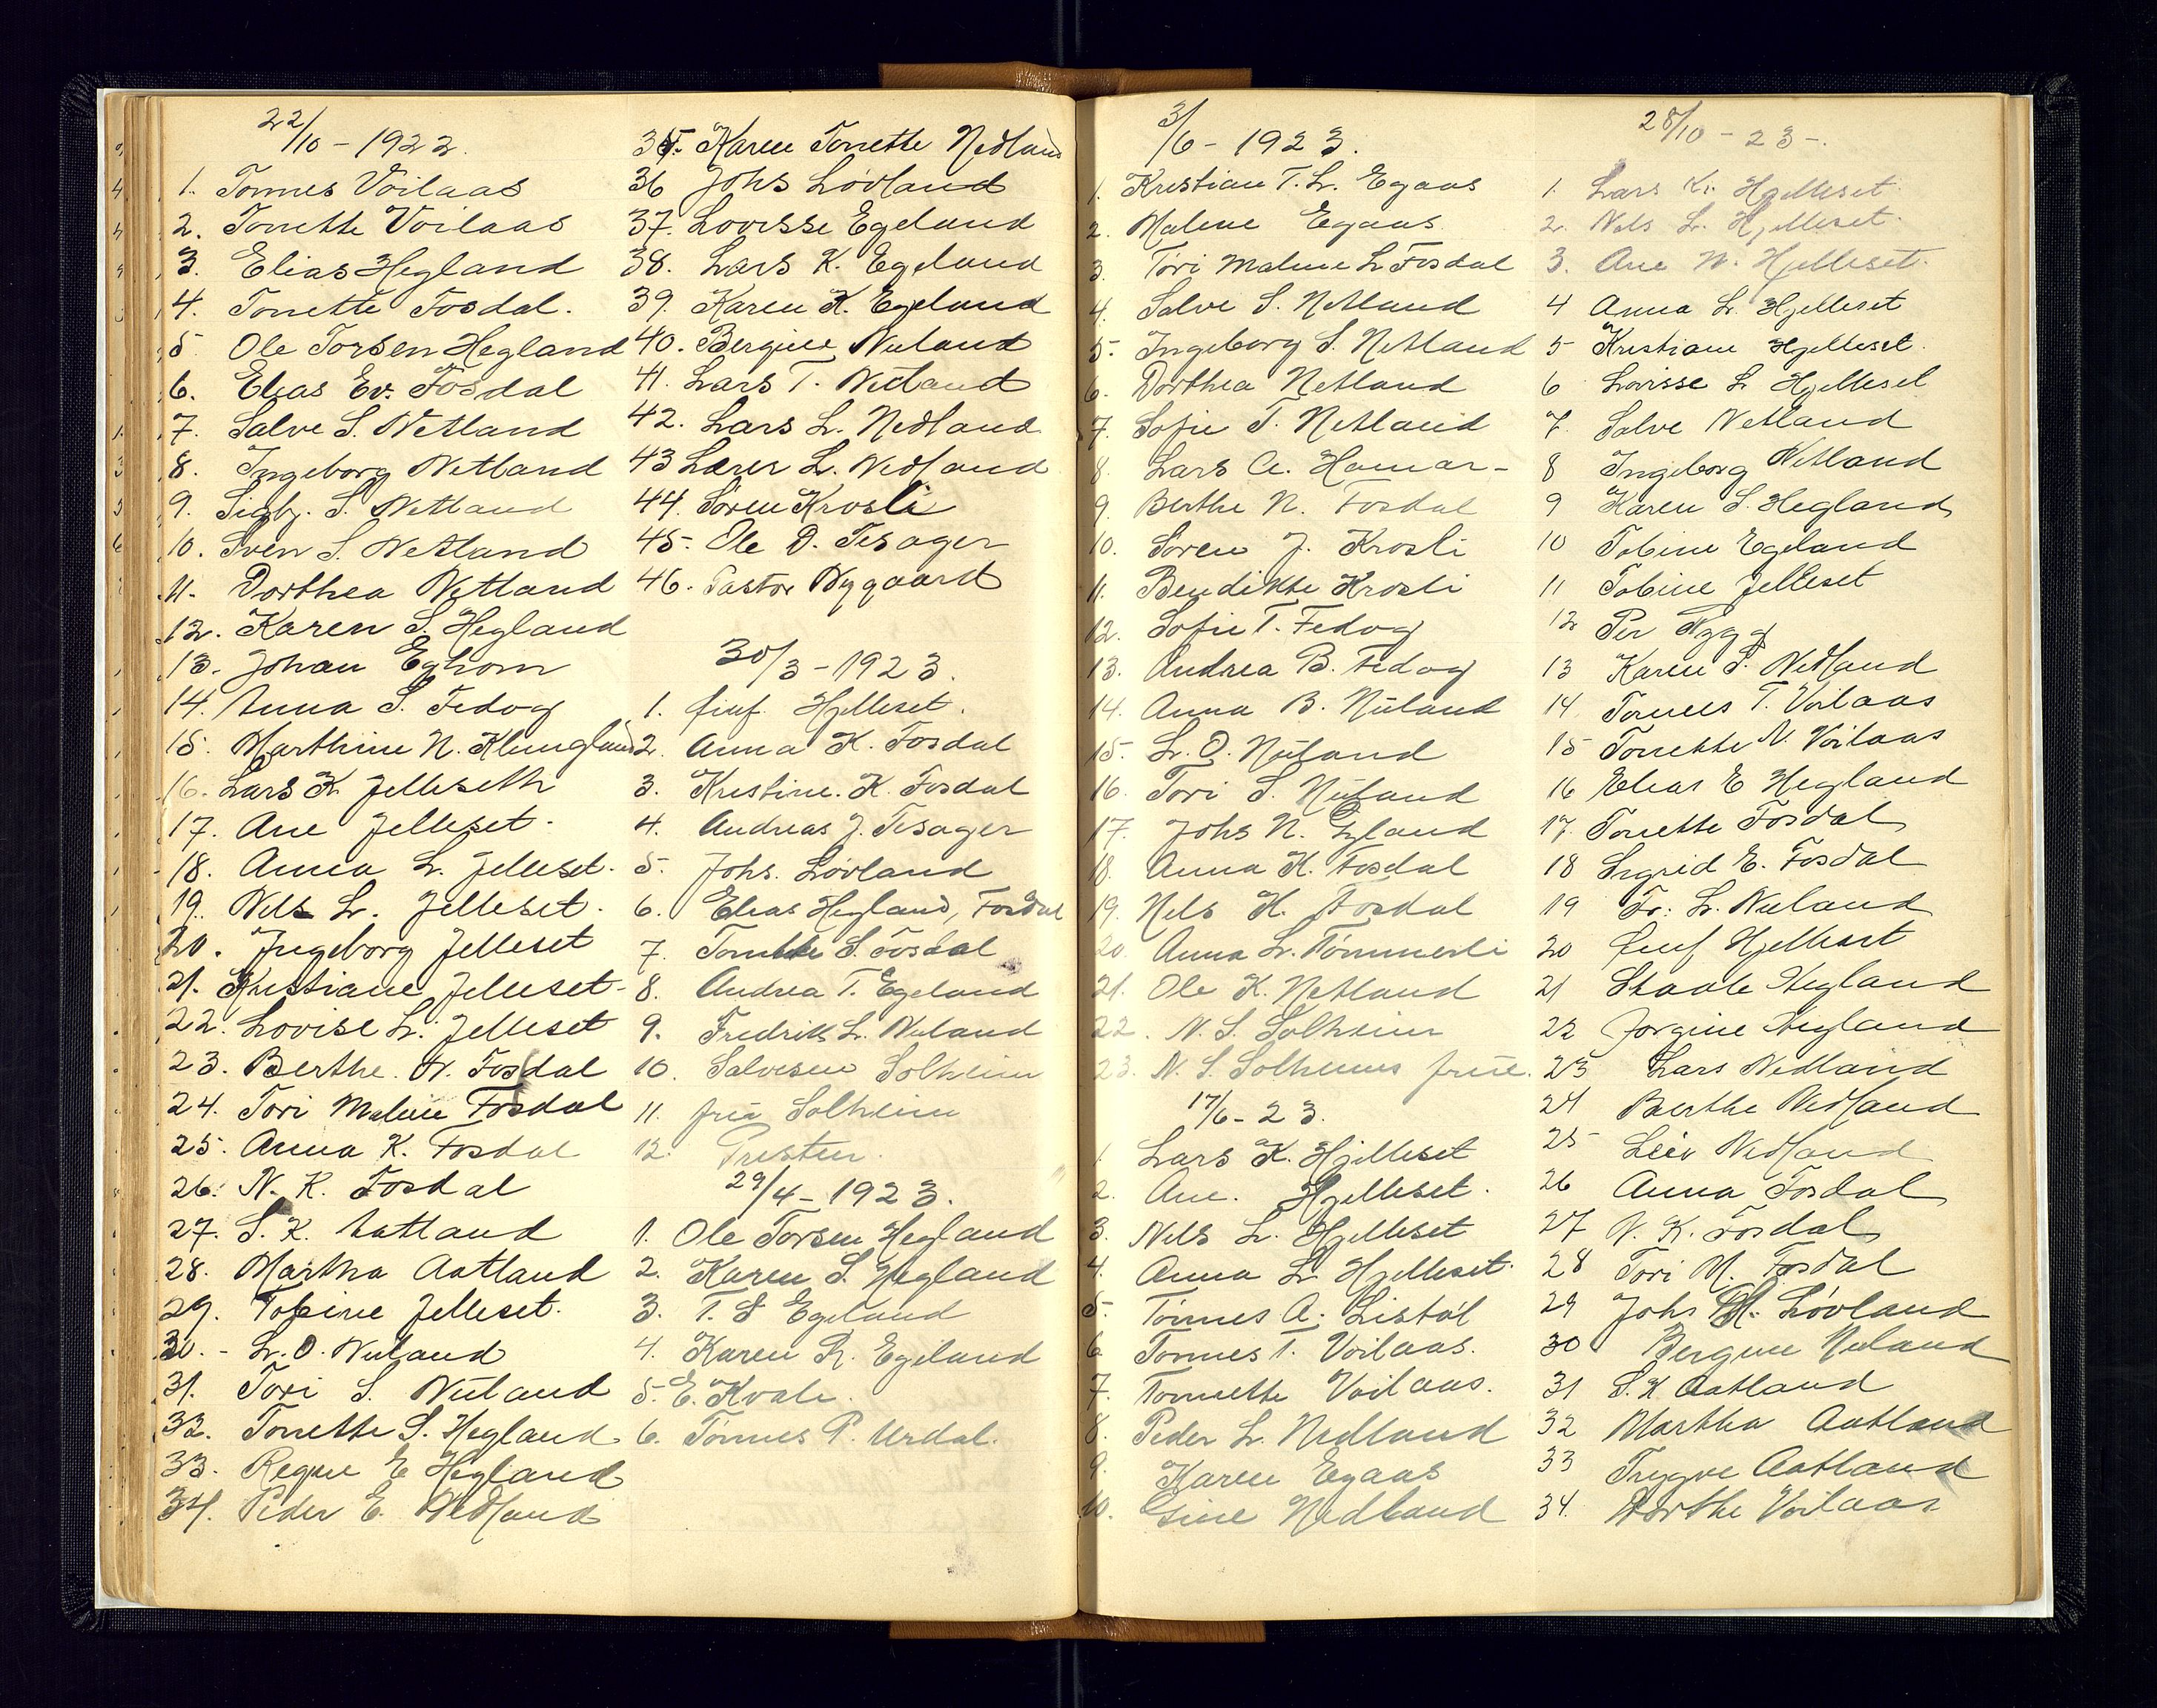 22/10 - 1922.
1. Tønnes Voilaas
2. Tonette Voilaas
3. Elias Hegland
4. Tonette Fosdal.
5 Ole Torsen Hegland
6. Elias Ev. Fosdal
7. Salve S. Netland
8. Ingeborg Netland
9. Sigbj. S. Netland
10. Sven S. Netland
11. Dorthea Netland
12. Karen S. Hegland
13. Johan Eghom
14. Anna S. Fedog
15. Marthine N. Klungland
16. Lars K. Jelleseth
17. Ane Jelleset.
18. Anna L. Jelleset.
19. Nels L. Jelleset.
20. Ingeborg Jelleset
21. Kristiane Jelleset
22. Lovise L. Jelleset
23. Berthe N. Fosdal
24. Tori Malene Fosdal
25. Anna K. Fosdal
26. N. K. Fosdal
27. S. K. Aatland
28. Martha Aatland
29. Tobine Jelleset.
30. - L. O. Nuland
31. Tori S. Nuland
32. Tonette S. Hegland
33. Regine E Hegland
34. Peder E. Nedland
35. Karen Tonette Nedland
36 Johs Lövland
37. Lovisse Egeland
38. Lars K. Egeland
39. Karen K. Egeland
40. Bergine Nuland
41. Lars T. Nedland
42. Lars L. Nedland
43 Lærer L. Nedland
44. Sören Krosli
45. Ole D. Tesager
46. Pastor Nygaard
30/3 - 1923.
1. Hjelleset.
2. Anna K. Fosdal
3. Kristine. K. Fosdal
4. Andreas J. Tesager
5. Johs. Lövland
6. Elias Hegland, Fosdal
7. Tonette S. Fosdal
8. Andrea T. Egeland
9. Fredrik L. Nuland
10. Salvesen Solheim
11. frü Solheim
12. Presten.
29/4 - 1923.
1. Ole Torsen Hegland
2. Karen S. Hegland
3. T. S Egeland
4. Karen R. Egeland
5. E. Kvale.
6. Tönnes P. Urdal.
3/6 - 1923.
1. Kristian T. L. Egaas
2. Malene Egaas
3. Töri Malene L Fosdal
4. Salve S. Netland
5. Ingeborg S. Netland
6. Dorthea Netland
7. Sofie T. Netland
8. Lars A. Hamar-
9. Berthe N. Fosdal
10. Sören J. Krosli
11. Bendikte Krosli
12. Sofie T. Fedog
13. Andrea B. Fedog
14. Anna B. Nüland
15. L. O. Nüland
16. Tori S. Nüland
17. Johs N. Egland
18. Anna K. Fosdal
19. Nels K. Fosdal
20. Anna L. Tömmerli
21. Ole K. Netland
22. N. S. Solheim
23. N. S. Solheims früe.
17/6 - 23.
1. Lars K. Hjelleset
2. Ane. Hjelleset.
3. Nels L. Hjelleset
4. Anna L Hjelleset.
5. Tönnes A. Listöl
6. Tönnes T. Voilaas.
7. Tonnette Voilaas.
8. Peder L. Nedland
9. Karen Egaas
10. Gine Nedland
28/10 - 23 -.
1. Lars K. Hjelleset.
2. Nels L. Hjelleset.
3. Ane N. Hjelleset.
4 Anna L. Hjelleset
5 Kristiane Hjelleset.
6 Lovisse L Hjelleset
7. Salve Netland
8 Ingeborg Netland
9 Karen S. Hegland
10 Tobine Egeland
11 Tobine Jelleset
12 Per Rygg
13 Karen T. Nedland
14 Tönnes T. Voilaas
15 Tonette N. Voilaas
16 Elias E Hegland
17. Tonette Fosdal
18 Sigrid E. Fosdal
19 Fr: L. Nuland
20 Hjelleset
21 Staale Hegland
22 Jorgine Hegland
23 Lars Nedland
24 Berthe Nedland
25 Leiv Nedland
26 Anna Fosdal
27 N. K. Fosdal
28 Tori M. Fosdal
29 Johs M. Lövland
30 Bergine Nuland
31 S. K Aatland
32 Martha Aatland
33 Trygve Aatland
34. Dorthe Voilaas